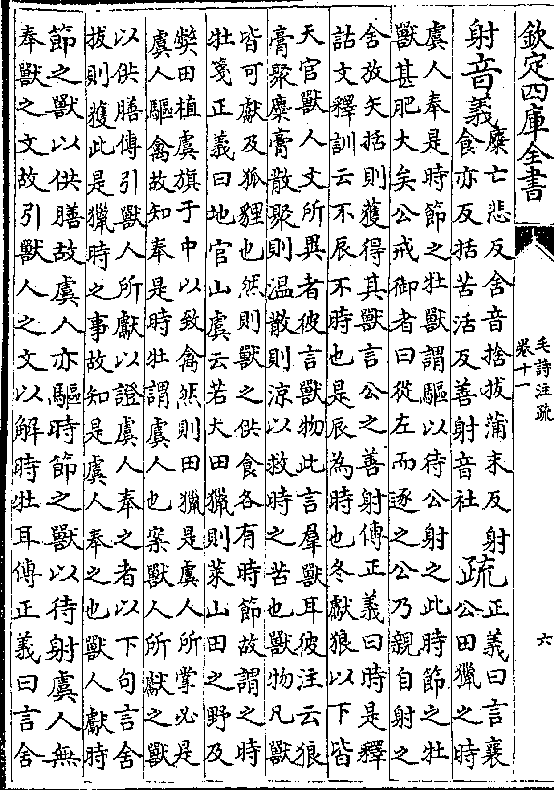 欽定四庫全書
毛詩注疏
卷十一
六
射音義麋亡悲反舍音捨拔蒲末反射
食亦反括苦活反善射音社疏正義曰言襄
公田獵之時
虞人奉是時節之牡獸謂驅以待公射之此時節之牡
獸甚肥大矣公戒御者曰從左而逐之公乃親自射之
舍放矢括則獲得其獸言公之善射傳正義曰時是釋
詁文釋訓云不辰不時也是辰為時也冬獻狼以下皆
天官獸人文所異者彼言獸物此言羣獸耳彼注云狼
膏聚麋膏散聚則温散則涼以救時之苦也獸物凡獸
皆可獻及狐貍也然則獸之供食各有時節故謂之時
牡箋正義曰地官山虞云若大田獵則萊山田之野及
獘田植虞旗于中以致禽然則田獵是虞人所掌必是
虞人驅禽故知奉是時牡謂虞人也案獸人所獻之獸
以供膳傳引獸人所獻以證虞人奉之者以下句言舍
拔則獲此是獵時之事故知是虞人奉之也獸人獻時
節之獸以供膳故虞人亦驅時節之獸以待射虞人無
奉獸之文故引獸人之文以解時牡耳傳正義曰言舍